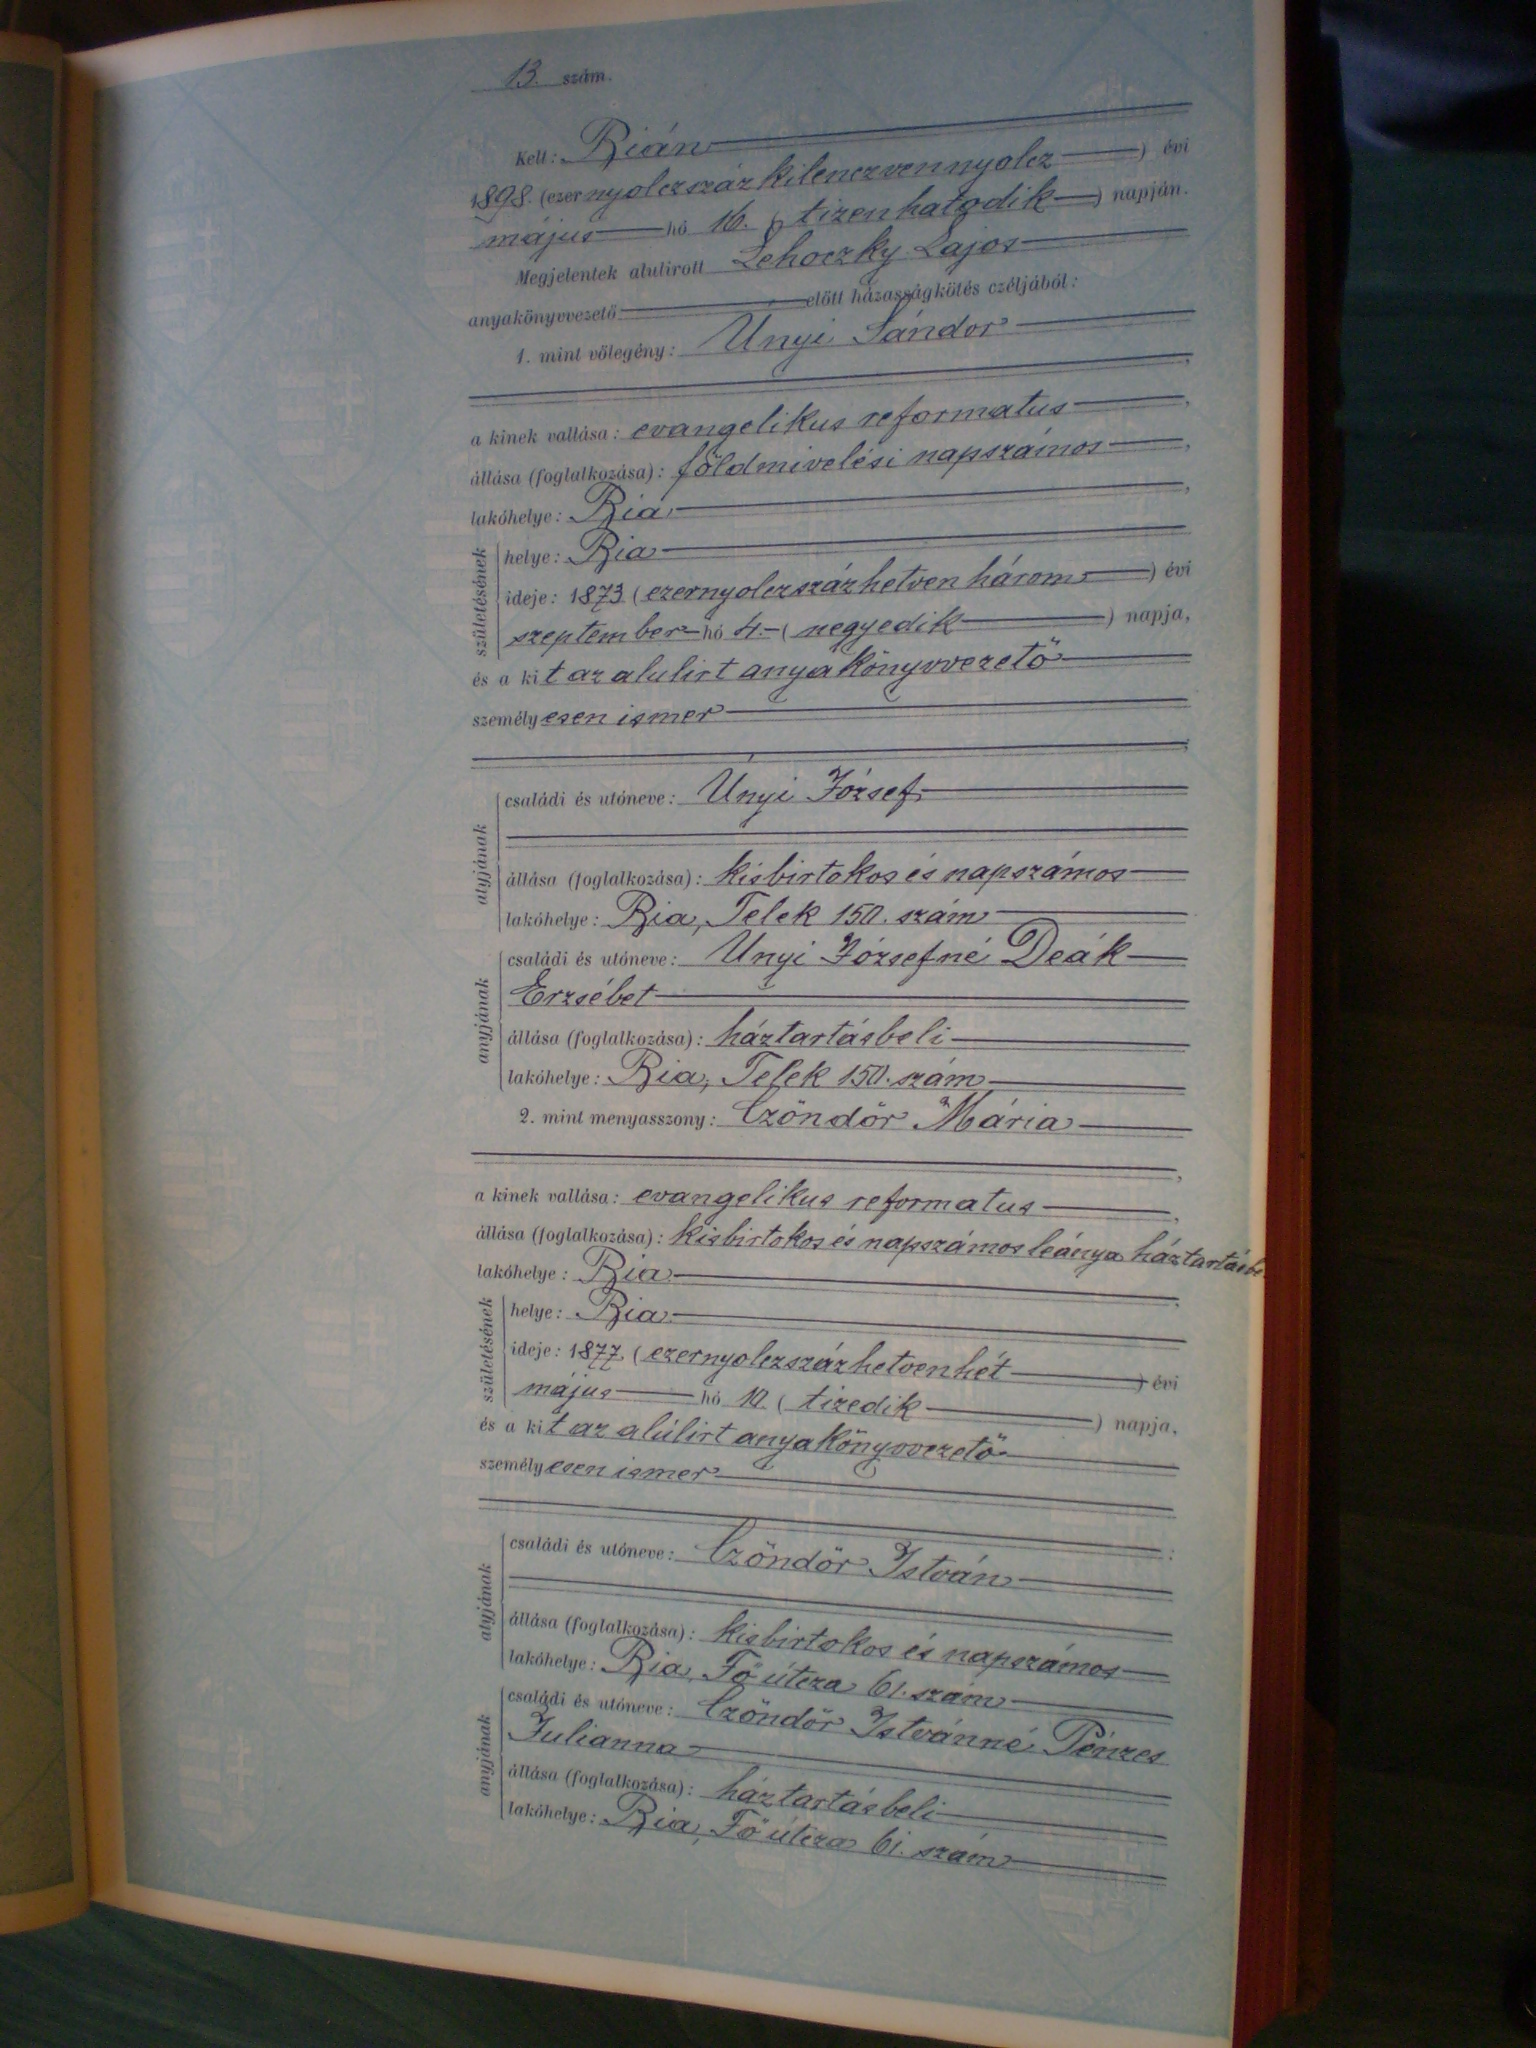 13. szám.
Kelt: Bián
1898. (ezernyolczszázkilenczvennyolcz) évi
május hó 16. (tizenhatodik) napján.
Megjelentek alulirott Lehoczky Lajos
anyakönyvvezető előtt házasságkötés czéljából:
1. mint vőlegény: Únyi Sándor
a kinek vallása: evangelikus reformatus,
állása (foglalkozása): földmivelési napszámos,
lakóhelye: Bia,
születésének
helye: Bia
ideje: 1873 (ezernyolczszázhetvenhárom) évi
szeptember hó 4. (negyedik) napja,
és a kit az alulirt anyakönyvvezető
személyesen ismer
;
atyjának
családi és utóneve: Únyi József
állása (foglalkozása): kisbirtokos és napszámos
lakóhelye: Bia, Telek 150. szám
anyjának
családi és utóneve: Unyi Józsefné Deák
Erzsébet
állása (foglalkozása): háztartásbeli
lakóhelye: Bia, Telek 150. szám
2. mint menyasszony: Czöndör Mária
,
a kinek vallása: evangelikus reformatus,
állása (foglalkozása): kisbirtokos és napszámos leánya háztartásbe
lakóhelye: Bia,
születésének
helye: Bia
ideje: 1877 (ezernyolczszázhetvenhét) évi
május hó 10. (tizedik) napja,
és a kit az alúlirt anyakönyvvezető
személyesen ismer
;
atyjának
családi és utóneve: Czöndör István
állása (foglalkozása): kisbirtokos és napszámos
lakóhelye: Bia, Fő útcza 61. szám
anyjának
családi és utóneve: Czöndör Istvánné Pénzes
Julianna
állása (foglalkozása): háztartásbeli
lakóhelye: Bia, Fő útcza 61. szám